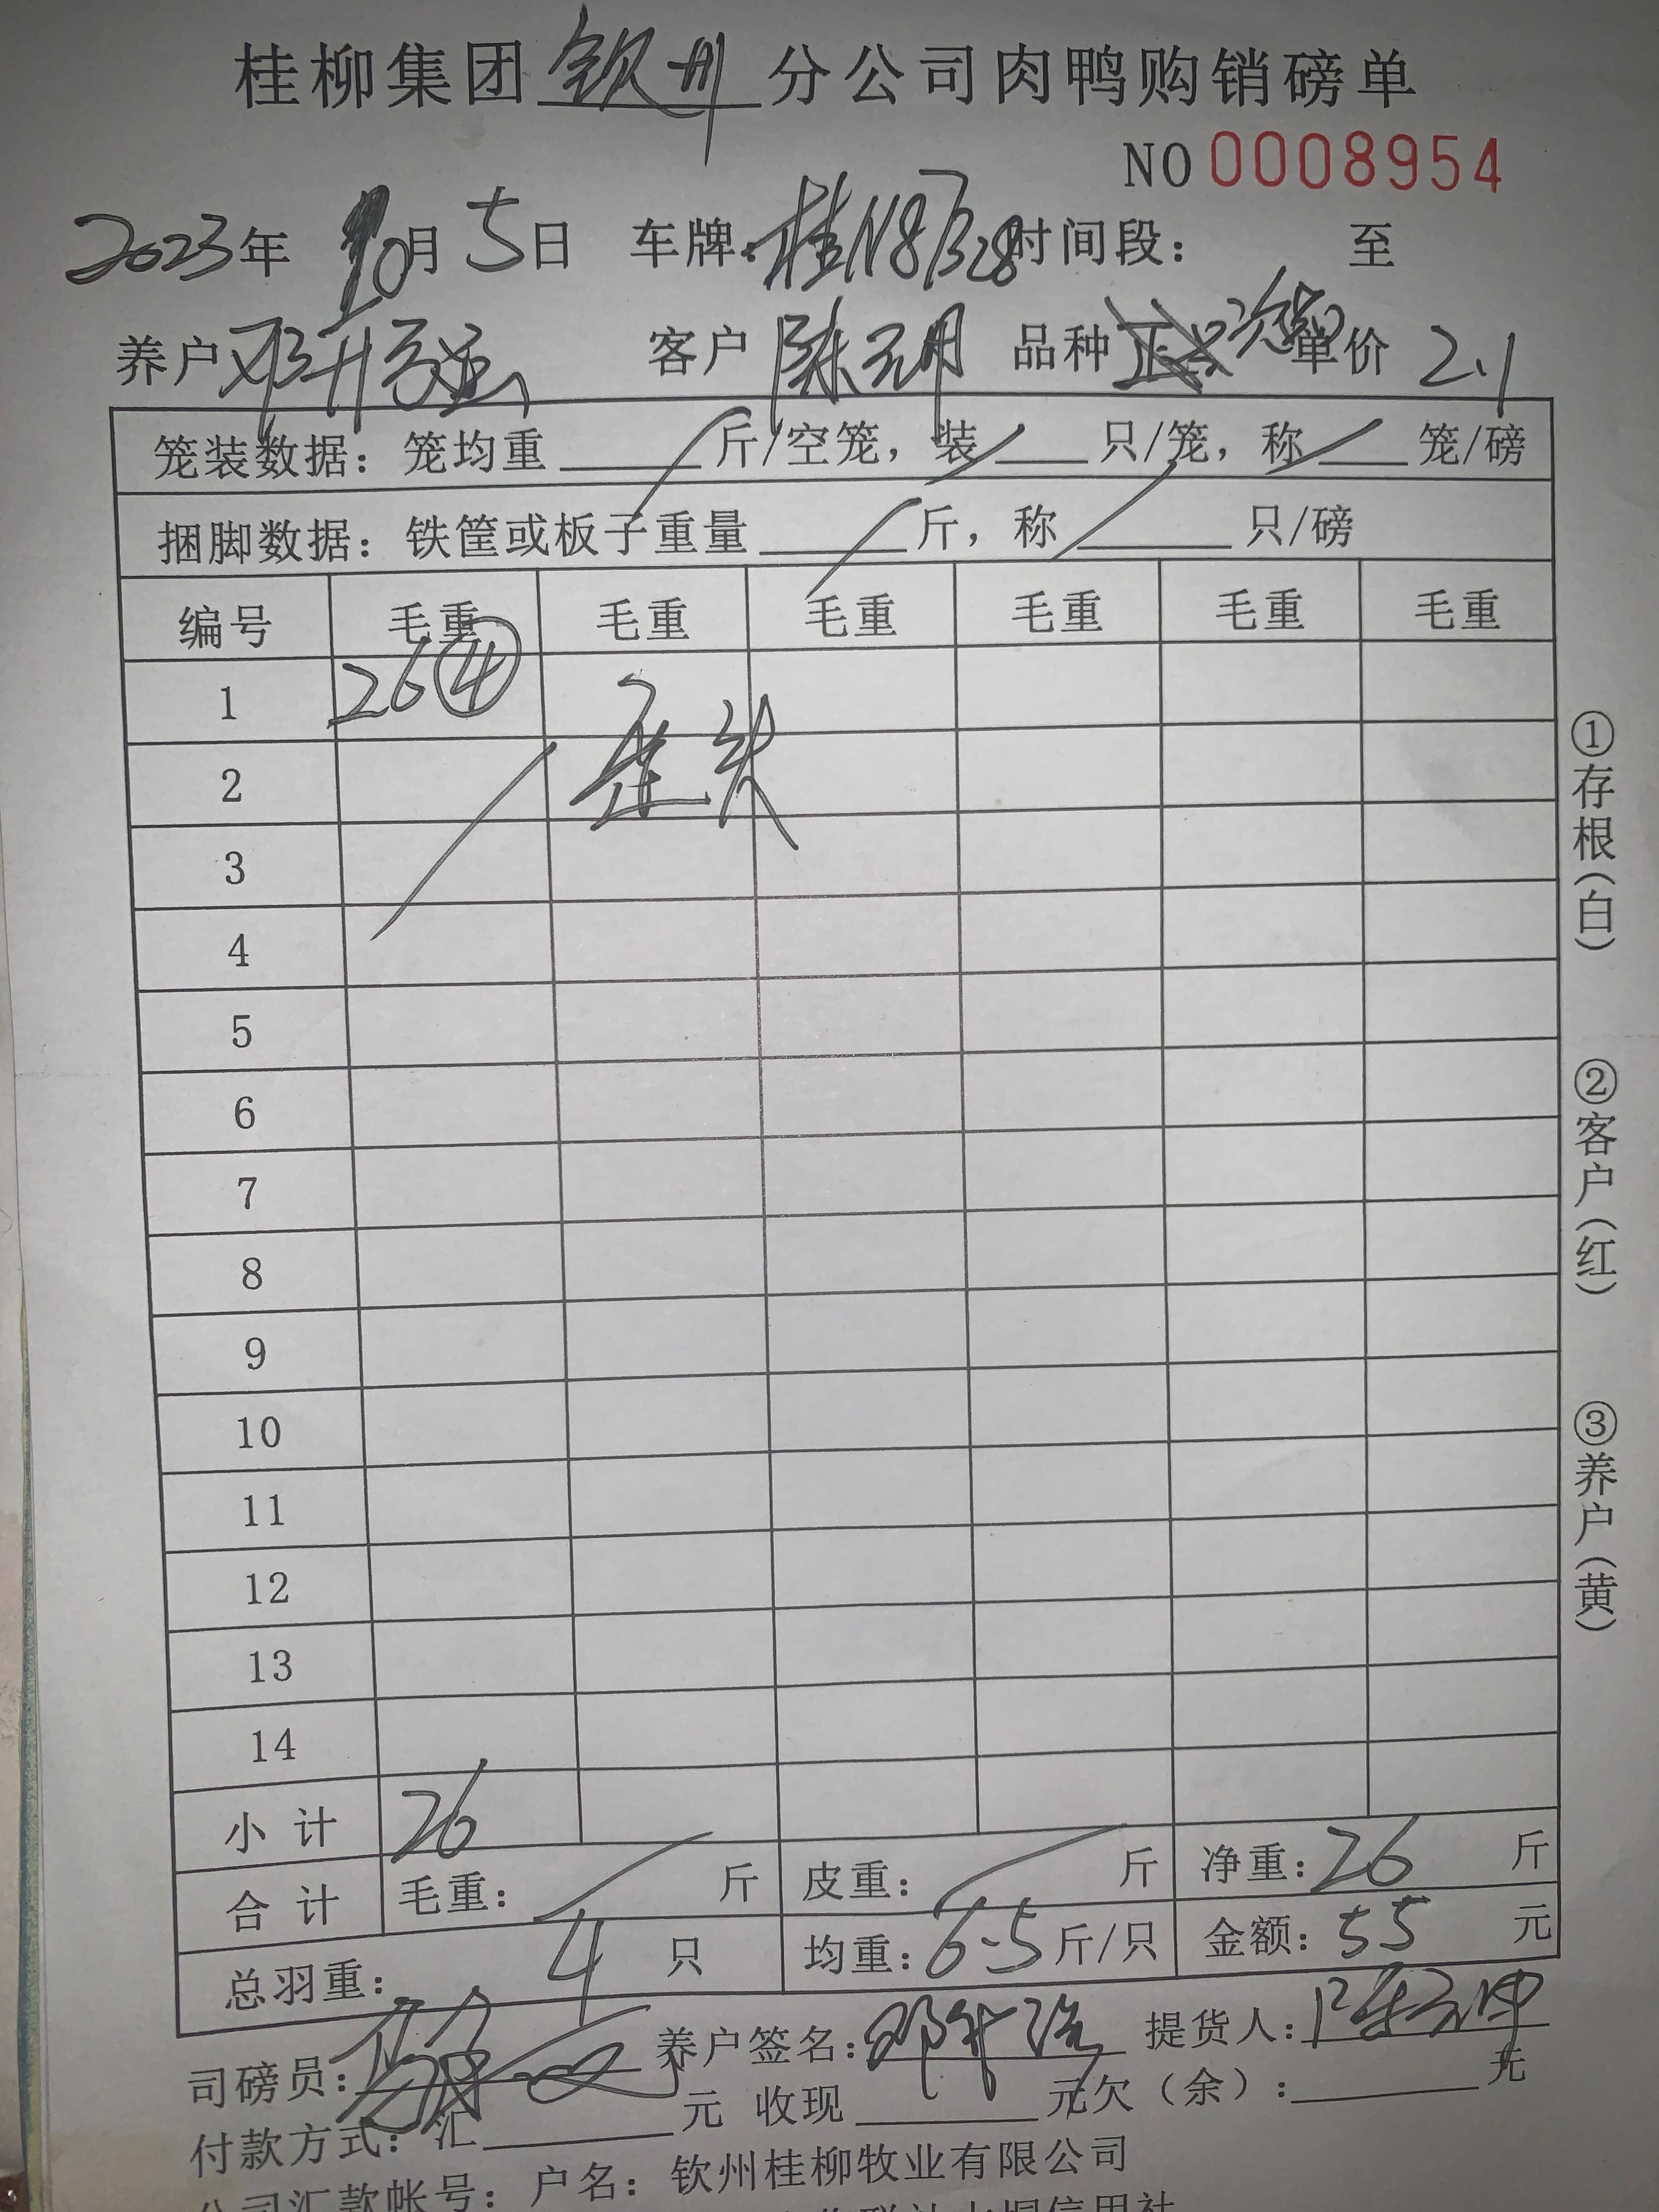 桂柳集团钦州分公司肉鸭购销磅单
NO 0008954
2023年 10月5日 车牌:桂N87B28时间段： 至
养户邓升 客户陈元明 品种 次鸭 单价 2.1
笼装数据：笼均重 斤/空笼，装 只/笼，称 笼/磅
捆脚数据：铁筐或板子重量 斤，称 只/磅
编号 毛重 毛重 毛重 毛重 毛重 毛重
1 26④
2
3
4
5
6
7
8
9
10
11
12
13
14
小 计 26
合 计 毛重： 斤 皮重： 斤 净重：26 斤
总羽重： 4 只 均重：6.5斤/只 金额：55 元
司磅员： 养户签名： 提货人：
付款方式：汇 元 收现 元欠（余）： 元
公司汇款帐号：户名：钦州桂柳牧业有限公司
①存根（白）
②客户（红）
③养户（黄）